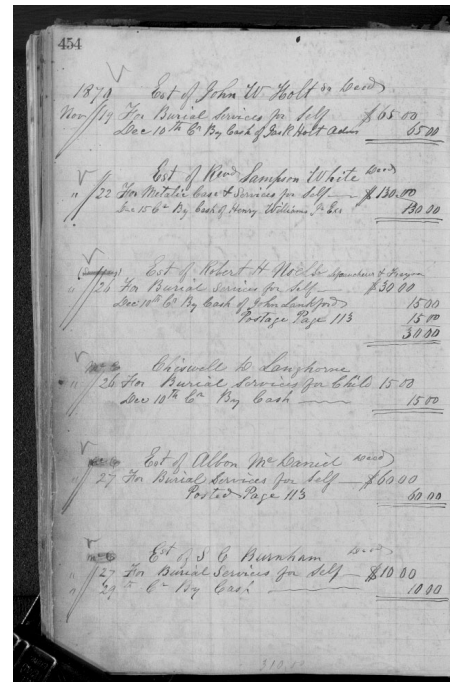 454
1870 Est of John W Holt Sr Decd
Nov 19 For Burial Services for Self $65.00
Dec 10th Cr By Cash of Jas R Holt Admr 65 00
Est of Revd Sampson White Decd
" 22 For Metalic Case & Services for Self $130.00
Dec 15 Cr By Cash of Henry Williams Jr Exe 130 00
Est of Robert H
" 26 For Burial Services for Self $30 00
Dec 10th Cr By Cash of John Lankford 15 00
Postage Page 113 15 00
30 00
Chiswell D. Langhorne
" 26 For Burial Services for Child 15 00
Dec 10th Cr By Cash 15 00
Est of Albon Mc Daniel Decd
" 27 For Burial Services for Self $60 00
Posted Page 113 60.00
Est of S C Burnham Decd
" 27 For Burial Services for Self $10 00
" 29 Cr By Cash 10 00